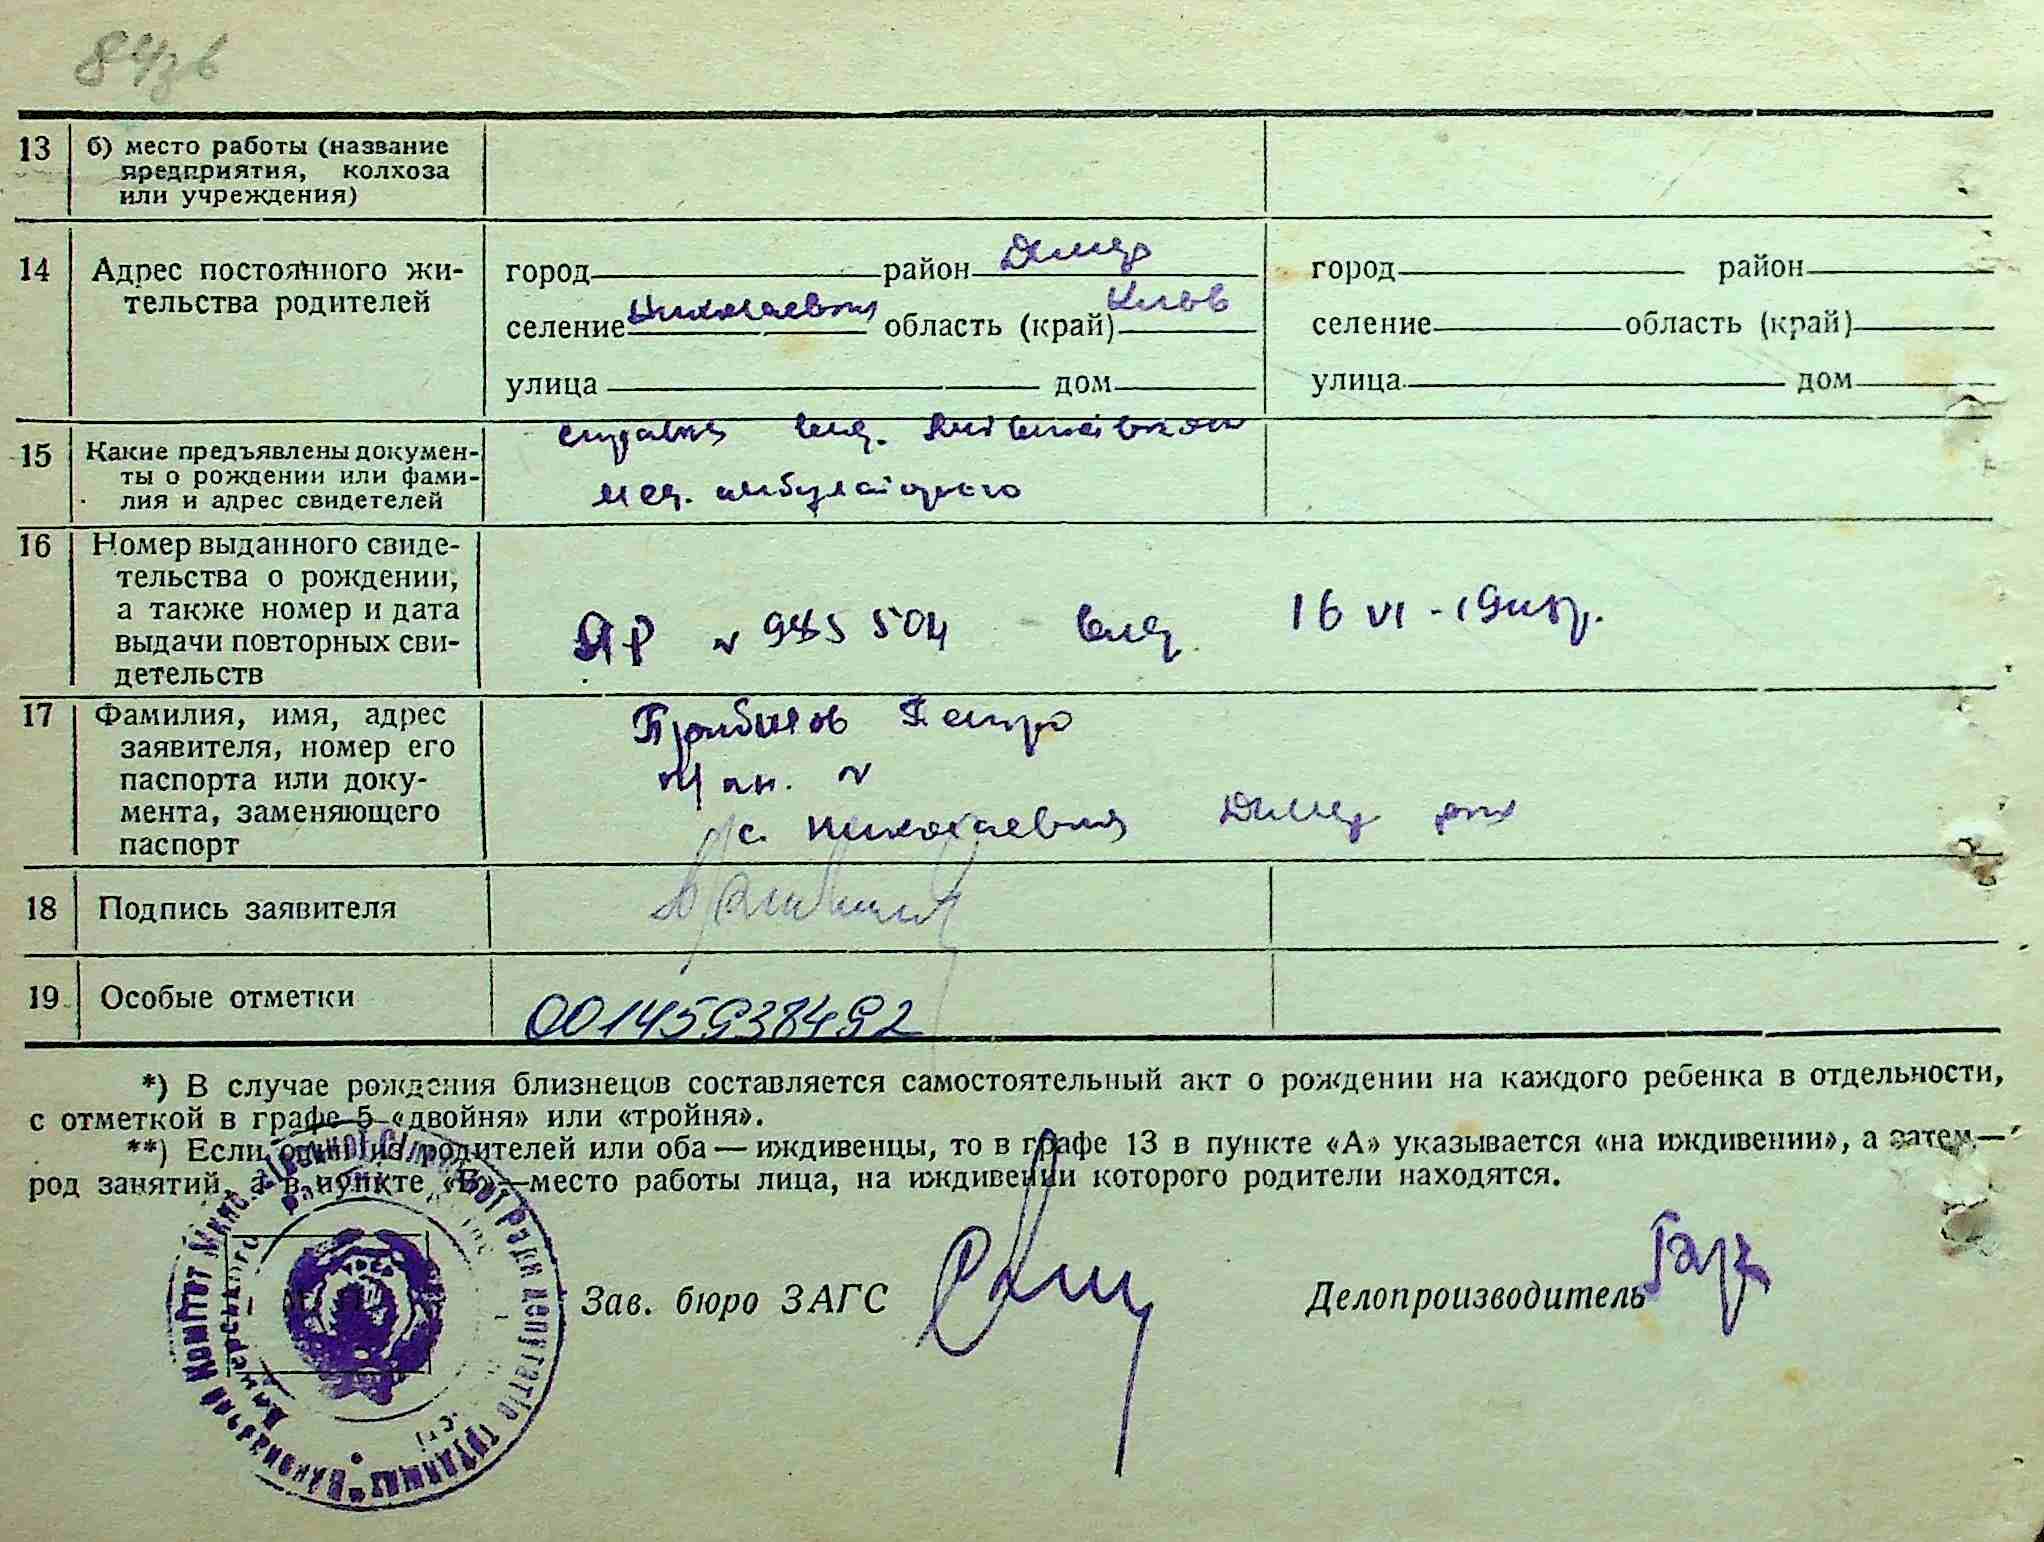 13 б) место работы (название
предприятия, колхоза
или учреждения)
14 Адрес постоянного жи-
тельства родителей
город район Димер
селение Николаевка область (край) Киев
улица дом
город район
селение область (край)
улица дом
15 Какие предъявлены докумен-
ты о рождении или фами-
лия и адрес свидетелей
справка выд.
мед. амбулаторією
16 Номер выданного свиде-
тельства о рождении,
а также номер и дата
выдачи повторных сви-
детельств
ЯР № 985504 выд. 16 VI - 19
17 Фамилия, имя, адрес
заявителя, номер его
паспорта или доку-
мента, заменяющего
паспорт
Петро
№
с. Николаевка Димер
18 Подпись заявителя
19 Особые отметки
00145938492
*) В случае рождения близнецов составляется самостоятельный акт о рождении на каждого ребенка в отдельности,
с отметкой в графе 5 «двойня» или «тройня».
**) Если один из родителей или оба — иждивенцы, то в графе 13 в пункте «А» указывается «на иждивении», а затем —
род занятий, а в пункте «Б» — место работы лица, на иждивении которого родители находятся.
Зав. бюро ЗАГС
Делопроизводитель
Виконавчий Комітет депутатів трудящих
Димерського